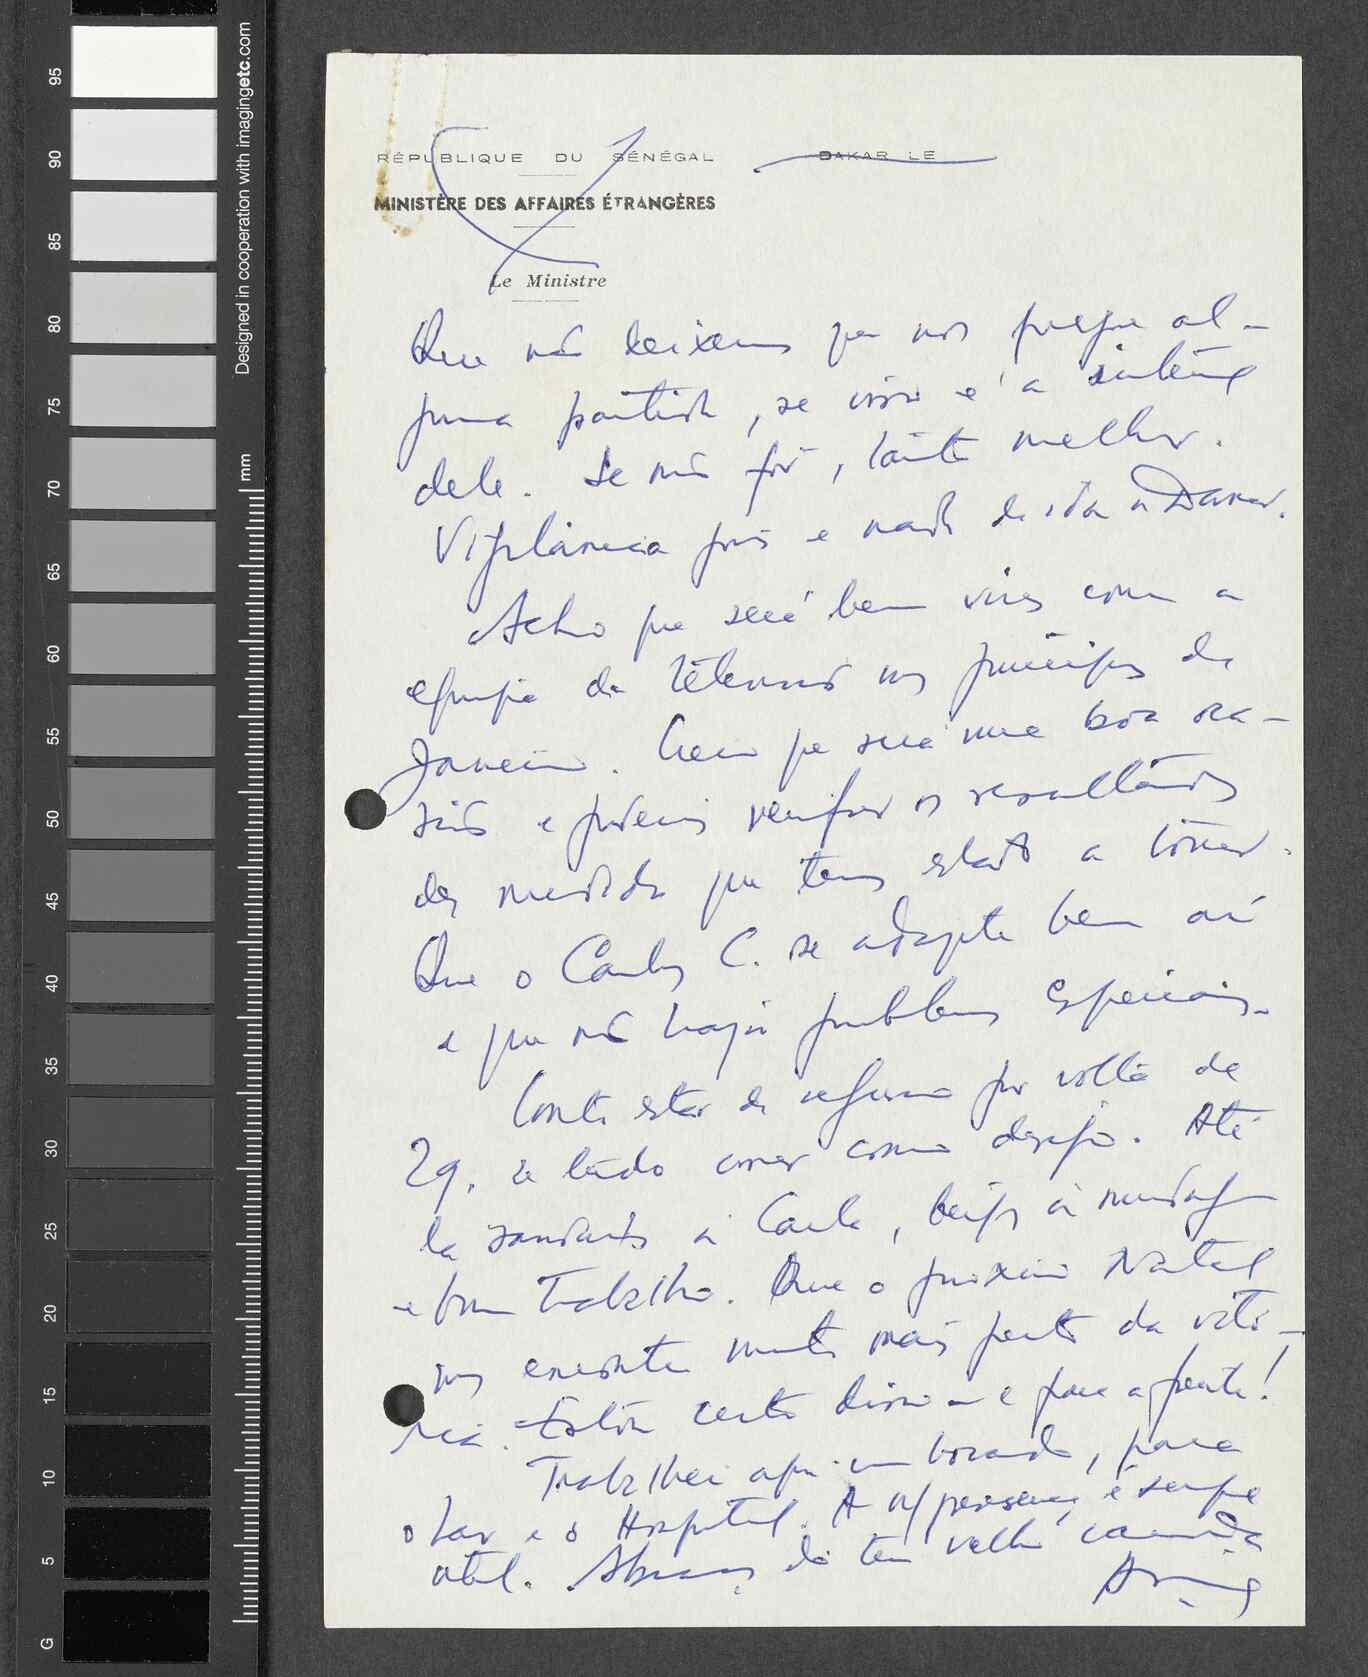 Designed in cooperation with imagingetc.com
mm
95
90
85
80
75
70
65
60
55
50
45
40
35
30
25
20
15
10
5
G
RÉPUBLIQUE DU SÉNÉGAL
DAKAR LE
MINISTÈRE DES AFFAIRES ÉTRANGÈRES
Le Ministre
Que não deixemos que nos pregue al-
guma partida, se isso é a intenção
dele. Se não for, tanto melhor.
Vigilância pois e nada de ida a Dakar.
Acho que será bem vires com a
equipa da nos princípios de
Janeiro. Creio que será uma boa oca-
sião e poderei verificar os resultados
das medidas que tens estado a tomar.
Que o Carlos C. se adapte bem aí
e que não haja problemas especiais.
Conto estar de regresso por volta de
29, se tudo correr como desejo. Até
lá saudades à Carla, beijos à
e bom Trabalho. Que o próximo Natal
nos encontre muito mais perto da vitó-
ria. Estou certo disso e para a frente!
Trabalhei aqui um bocado, para
o Lar e o Hospital. A n/ presença é sempre
útil. Abraços do teu velho camarada